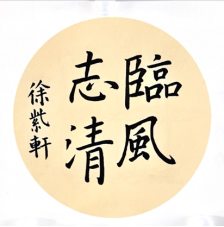 臨風
志清
徐紫軒